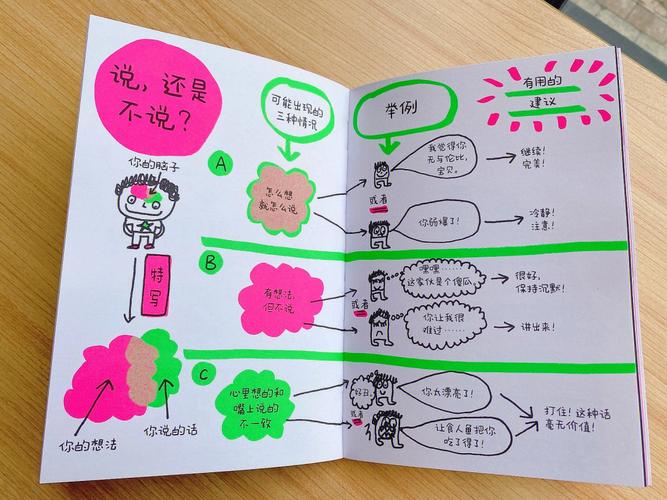 说，还是
不说？
你的脑子
特写
你的想法
你说的话
可能出现的
三种情况
举例
有用的
建议
A
怎么想
就怎么说
我觉得你
无与伦比，
宝贝。
继续！
完美！
或者
你弱爆了！
冷静！
注意！
B
有想法，
但不说
嘿嘿……
这家伙是个傻瓜。
很好，
保持沉默！
或者
你让我很
难过……
讲出来！
C
心里想的和
嘴上说的
不一致
好丑。
你太漂亮了！
或者
让食人鱼把你
吃了得了！
打住！这种话
毫无价值！